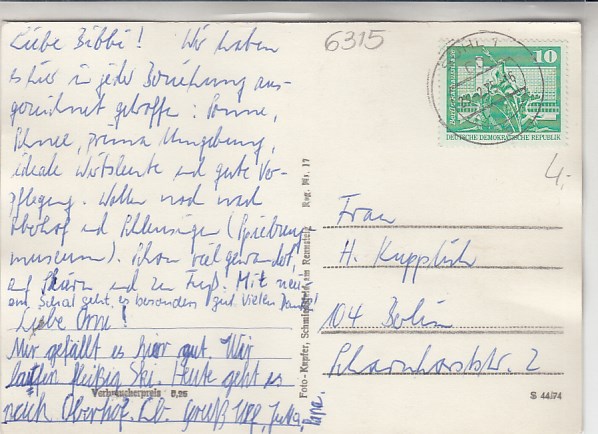 Liebe Bibbi! Wir haben
es hier in jeder Beziehung aus-
gezeichnet getroffen: Sonne,
Schnee, prima Umgebung,
ideale Wirtsleute und gute Ver-
pflegung. Wollen noch nach
Oberhof und Schleusingen (Spielzeug-
museum). Schon viel gewandert,
auf Skiern und zu Fuß. Mit neuem
Schal geht es besonders gut. Vielen Dank!
Liebe Omi!
Mir gefällt es hier gut. Wir
laufen fleißig Ski. Heute geht es
nach Oberhof. Gruß Jutta,
Papa.
Verbraucherpreis 0,25
Foto-Kupfer, Schmiedefeld am Rennsteig Reg. Nr. 17
6315
10
DEUTSCHE DEMOKRATISCHE REPUBLIK
4,-
Frau
H. Kupplich
104 Berlin
Scharnhorststr. 2
S 44/74